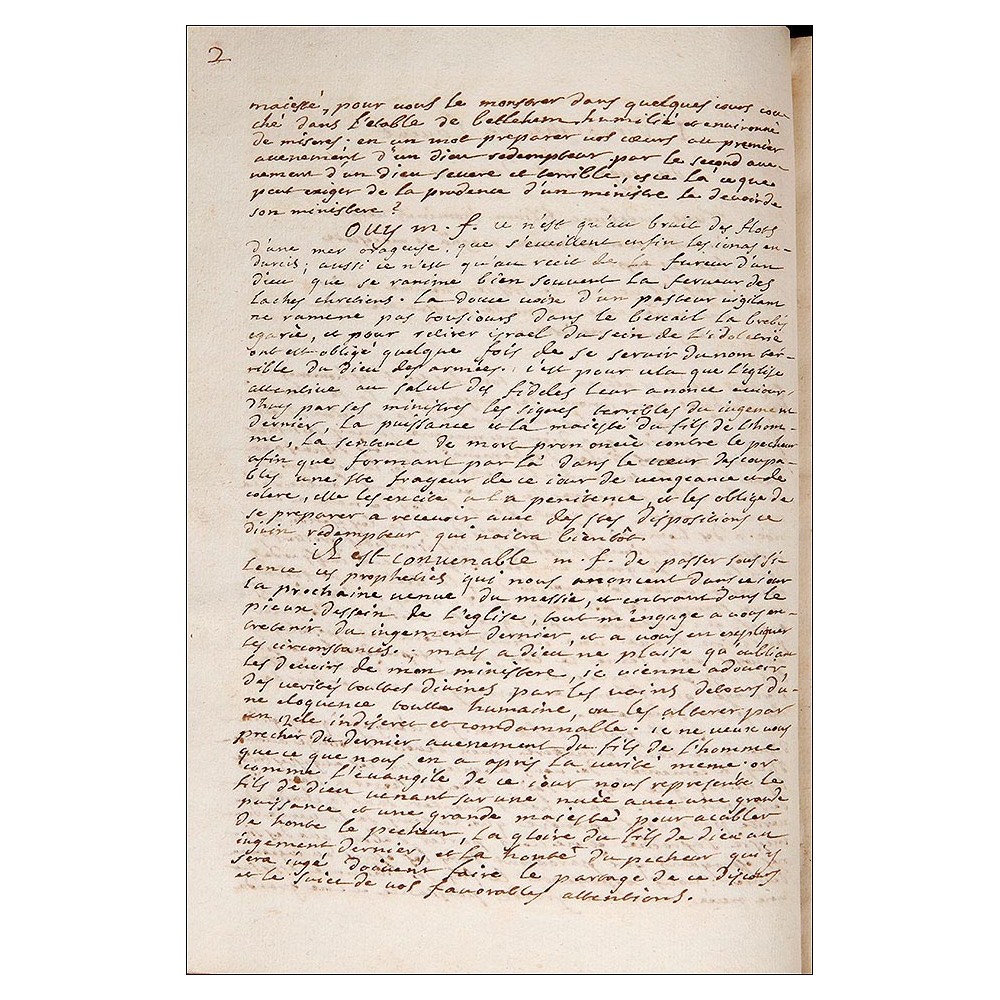 2
maiesté, pour vous le monstrer dans quelques iours cou-
ché dans l'etable de betlehem, humilié et environné
de miseres, en un mot preparer vos cœurs au premier
auenement d'un dieu redempteur par le second aue-
nement d'un dieu seuere et terrible, esce là ce que
peut exiger de la prudence d'un ministre le devoir de
son ministere?
Ouy m. f. ce n'est qu'au bruit des flots
d'une mer orageuse que s'eueillent enfin les ionas en-
durcis; aussi ce n'est qu'au recit de la fureur d'un
dieu que se ranime bien souvent la ferueur des
laches chretiens. La douce voix d'un pasteur vigilant
ne ramene pas tousiours dans le bercail la brebis
egarée, et pour retirer israel du sein de l'idolatrie
on est obligé quelque fois de se seruir du nom ter-
rible du dieu des armées. c'est pour cela que l'eglise
attentiue au salut des fideles leur anonce auiour-
d'huy par ses ministres les signes terribles du iugement
dernier, la puissance et la maiesté du fils de l'hom-
me, la sentence de mort prononcée contre le pecheur
afin que formant par là dans le cœur des coupa-
bles une ste frayeur de ce iour de vengeance et de
colere, elle les excite a la penitence, et les oblige de
se preparer a recevoir avec des stes dispositions ce
divin redempteur qui naitra bientôt
il est convenable m. f. de passer sous si-
lence ces propheties qui nous anoncent dans ce iour
la prochaine venue du messie, et entrant dans le
pieux dessein de l'eglise, tout m'engage a vous en-
tretenir du iugement dernier, et a vous en expliquer
les circonstances. mais a dieu ne plaise qu'oubliant
les devoirs de mon ministere, ie vienne adoucir
des verités touttes divines par les vains detours d'u-
ne eloquence toutte humaine, ou les alterer par
un zele indiscret et condamnable. ie ne veux vous
precher du dernier auenement du fils de l'homme
que ce que nous en a apris la verité meme. or
comme l'évangile de ce iour nous represente le
fils de dieu venant sur une nuée auec une grande
puissance et une grande maiesté pour acabler
de honte le pecheur, la gloire du fils de dieu au
iugement dernier, et la honte du pecheur qui y
sera iugé doivent faire le partage de ce discours
et le suiet de vos favorables attentions.